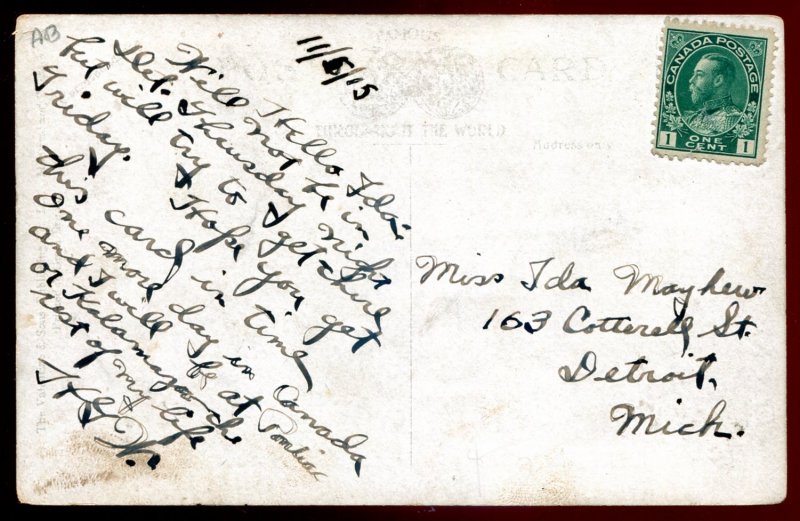 AB
11/8/15
Hello Ida:
Will not be in
Det. Thursday night
but will try to get there
Friday. I Hope you get
this card in time
One more day in Canada
and I will be at Pontiac
or Kalamazoo the
rest of my life
CARD
Address only
CANADA POSTAGE
1 ONE CENT 1
Miss Ida Mayhew
163 Cotterell St.
Detroit,
Mich.